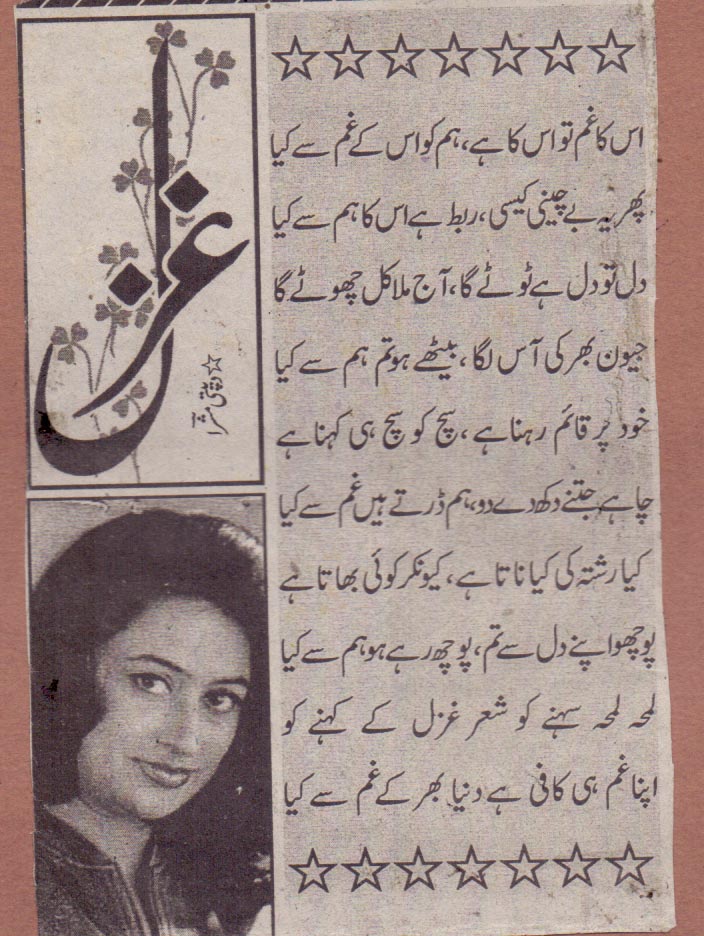 غزل
☆ دیپتی مشرا
☆☆☆☆☆☆☆
اس کا غم تو اس کا ہے، ہم کو اس کے غم سے کیا
پھر یہ بے چینی کیسی، ربط ہے اس کا ہم سے کیا
دل تو دل ہے ٹوٹے گا، آج ملا کل چھوٹے گا
جیون بھر کی آس لگا، بیٹھے ہو تم ہم سے کیا
خود پر قائم رہنا ہے، سچ کو سچ ہی کہنا ہے
چاہے جتنے دکھ دے دو، ہم ڈرتے ہیں غم سے کیا
کیا رشتہ کی کیا ناتا ہے، کیونکر کوئی بھاتا ہے
پوچھو اپنے دل سے تم، پوچھ رہے ہو ہم سے کیا
لمحہ لمحہ سہنے کو شعر غزل کے کہنے کو
اپنا غم ہی کافی ہے دنیا بھر کے غم سے کیا
☆☆☆☆☆☆☆